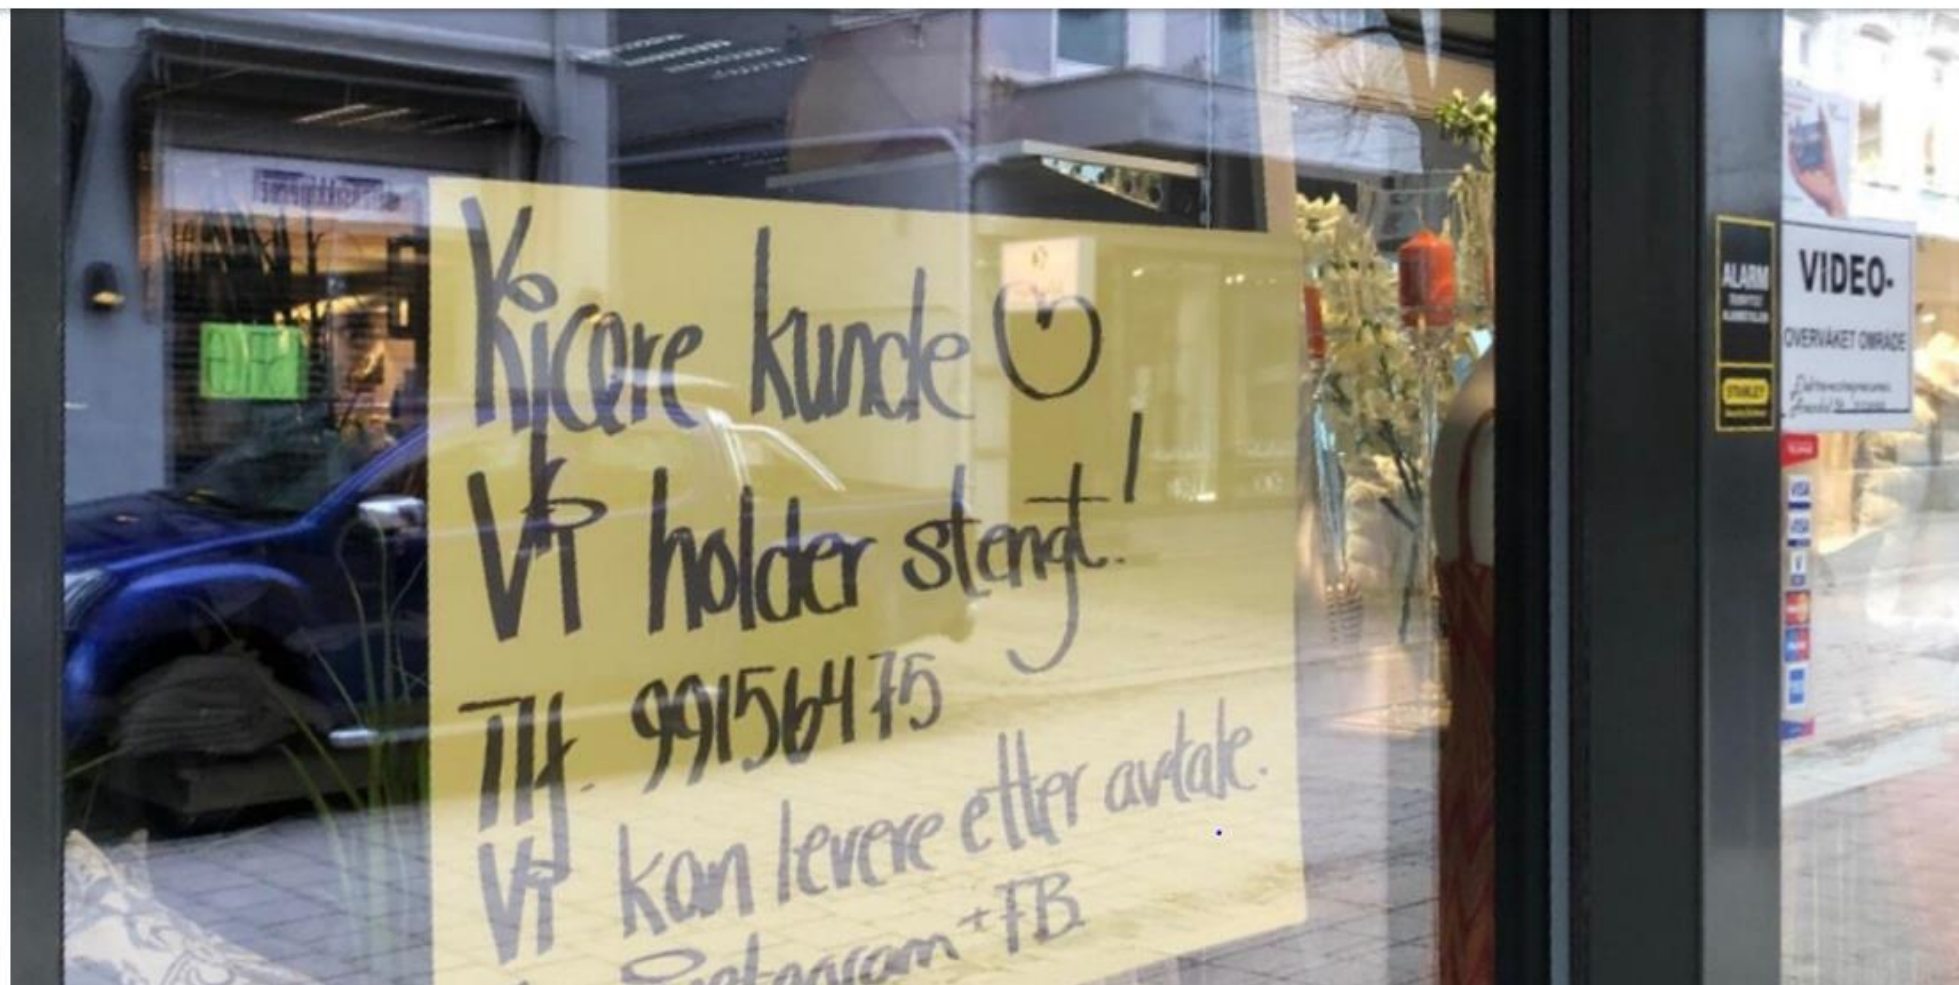 Kjære kunde
Vi holder stengt!
Tlf. 99156475
Vi kan levere etter avtale.
Instagram + FB.
ALARM
STANLEY
VIDEO-
OVERVÅKET OMRÅDE
VISA
VISA